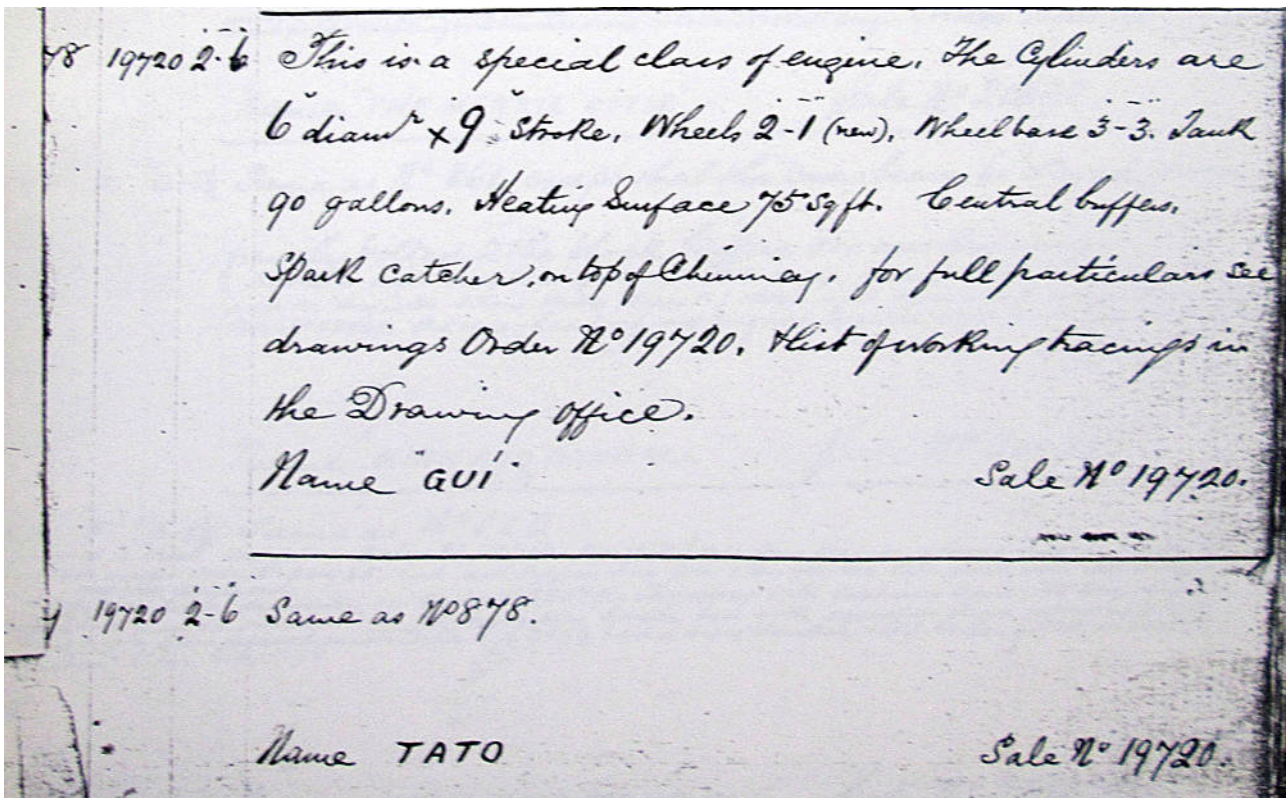 78 19720 2-6 This is a special class of engine. The Cylinders are
6" diamr x 9" Stroke. Wheels 2'-1" (new). Wheelbase 3'-3". Tank
90 gallons. Heating Surface 75 sq ft. Central buffers.
Spark catcher on top of Chimney. for full particulars see
drawings Order No 19720. & list of working tracings in
the Drawing office.
Name "GUÍ" Sale No 19720.
19720 2-6 Same as No 878.
Name TATO Sale No 19720.